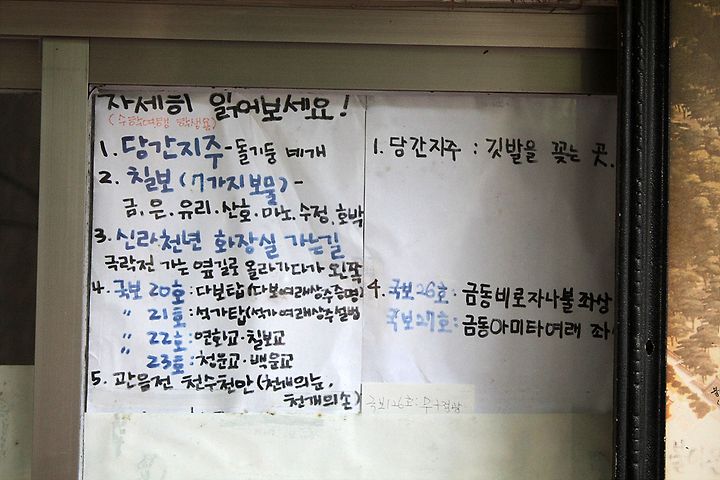 자세히 읽어보세요!
(수학여행 학생용)
1. 당간지주 - 돌기둥 네개
2. 칠보 (7가지보물) -
금, 은, 유리, 산호, 마노, 수정, 호박
3. 신라천년 화장실 가는길
극락전 가는 옆길로 올라가다가 왼쪽
4. 국보 20호 : 다보탑 (다보여래상주증명)
〃 21호 : 석가탑 (석가여래상주설법)
〃 22호 : 연화교·칠보교
〃 23호 : 청운교·백운교
5. 관음전 천수천안 (천개의눈,
천개의손)
1. 당간지주 : 깃발을 꽂는 곳.
4. 국보26호 : 금동비로자나불 좌상
국보27호 : 금동아미타여래 좌
국보126호 :